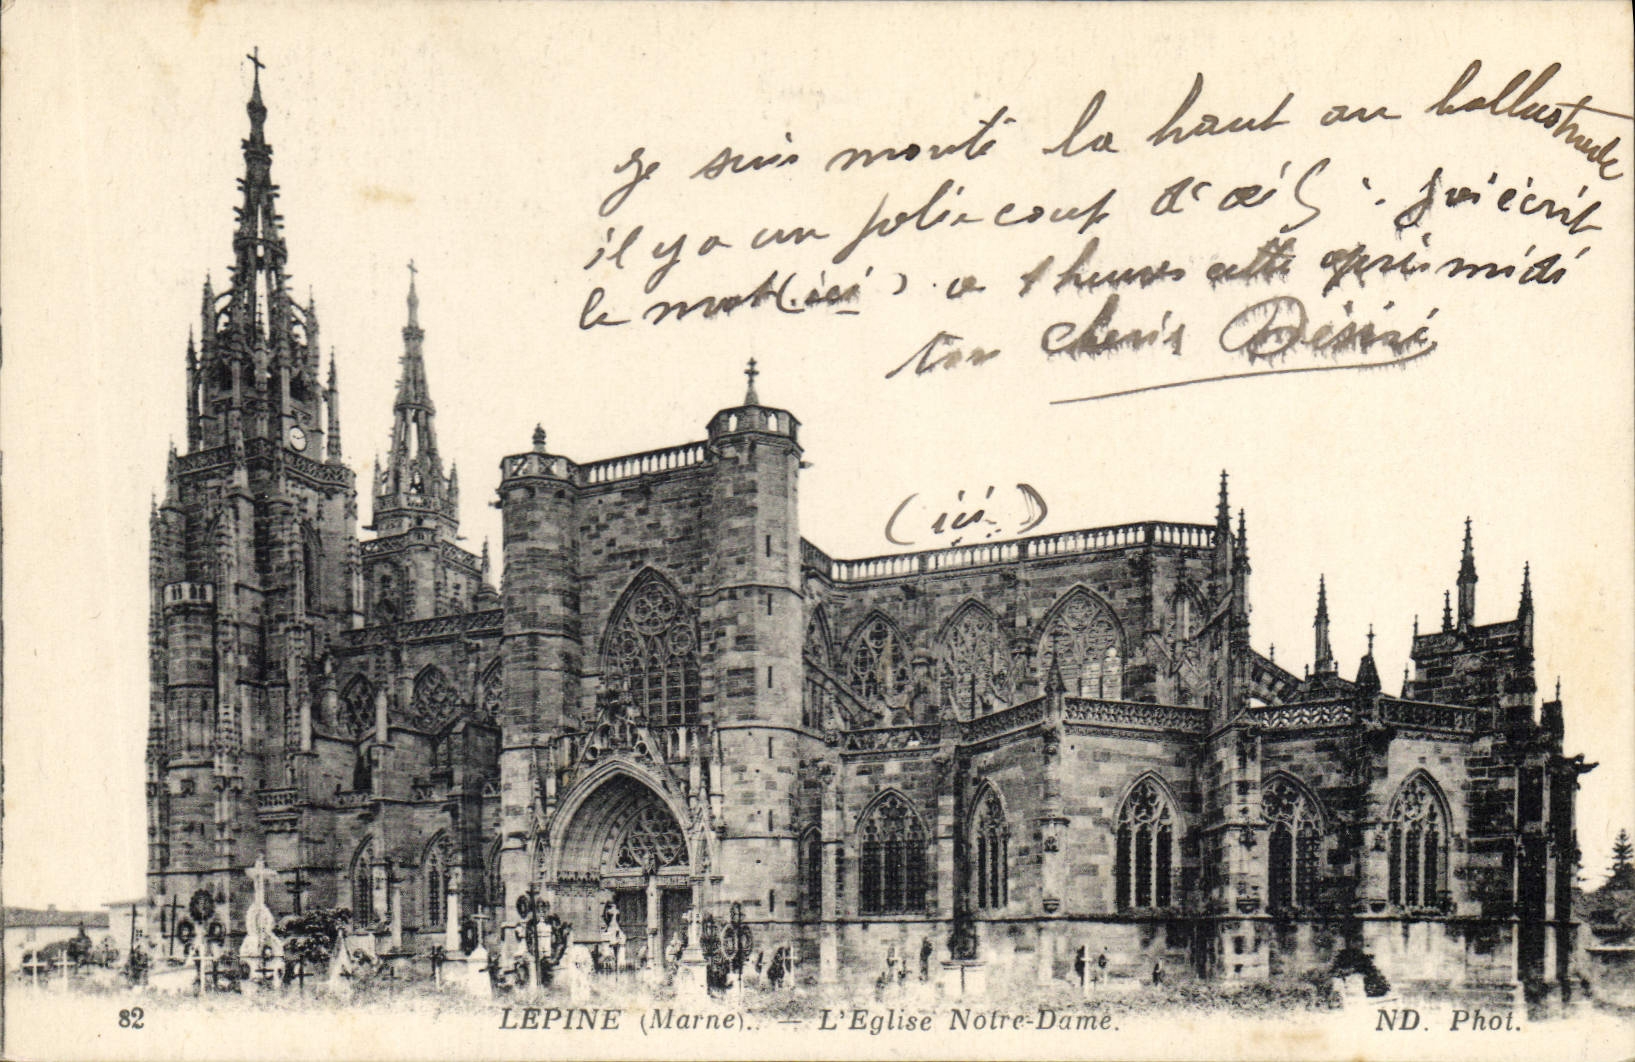 Je suis monté la haut au ballustrade
il y a un joli coup d'œil. j'ai écrit
le mot (ici) a heures cette après midi
ton cheris Désiré
(ici)
82 LEPINE (Marne). — L'Eglise Notre-Dame. ND. Phot.